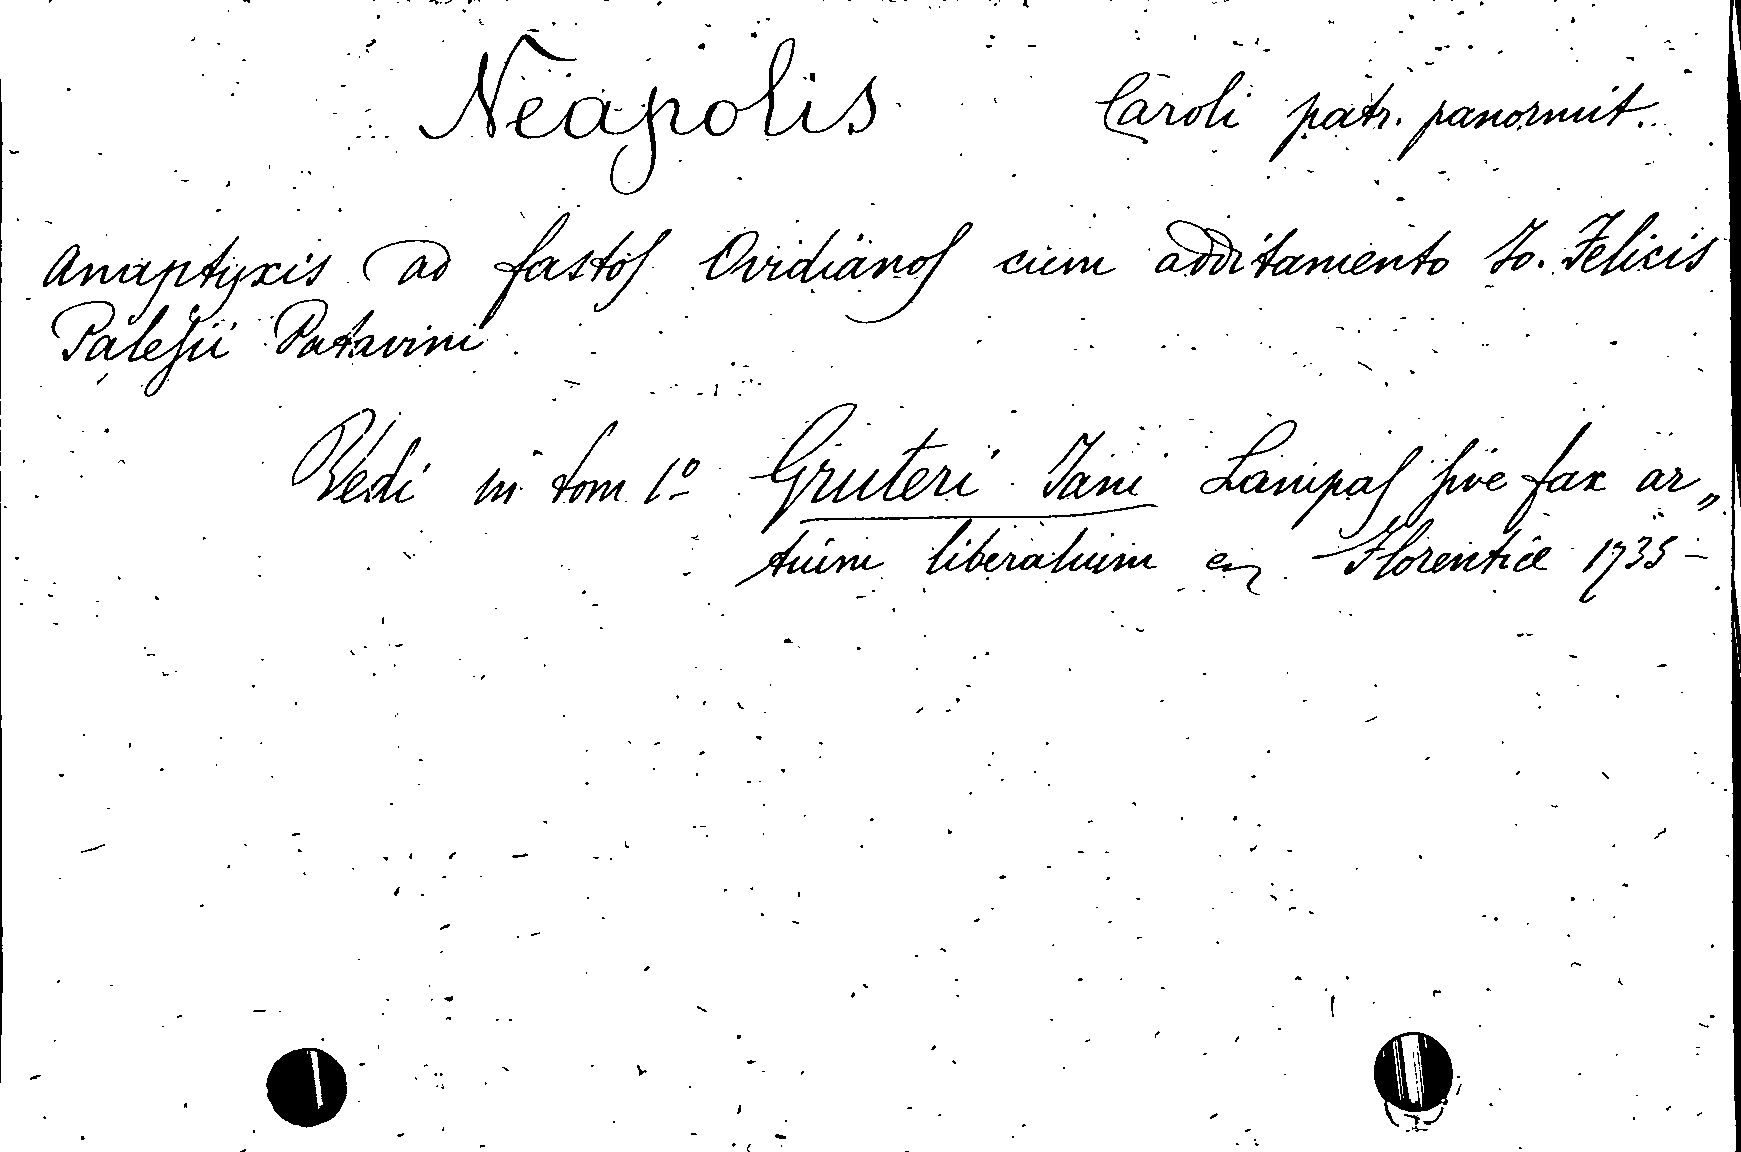 Neapolis Caroli patr. panormit.
Anaptyxis ad fastos Ovidianos cum additamento Io. Felicis
Palesii Patavini
Vedi in tom 1º Gruteri Jani Lampas sive fax ar„
tium liberalium ec Florentiæ 1735 –